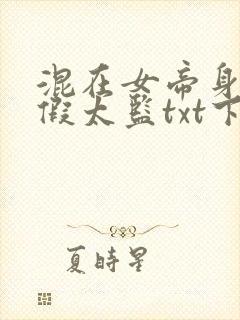 混在女帝身
假太监txt下
夏时星